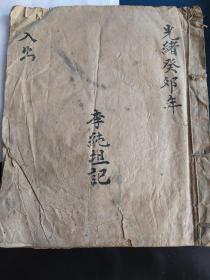 光緒癸卯年
李純担記
入出